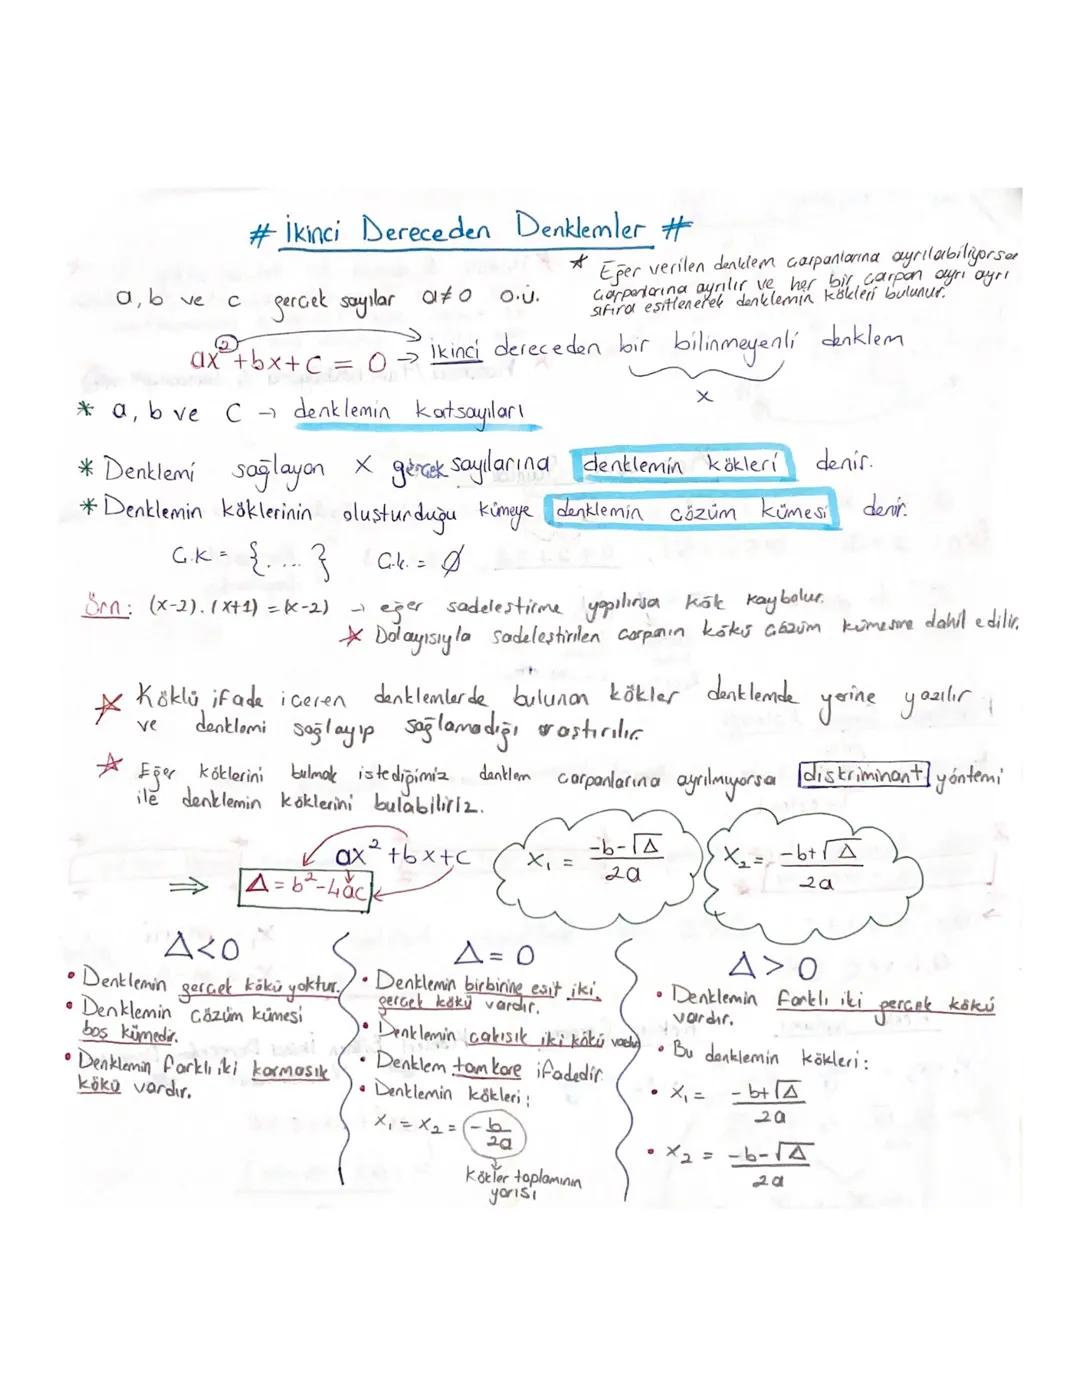 # İkinci Dereceden Denklemler #
* Eğer verilen denklem çarpanlarına ayrılabiliyorsa
çarpanlarına ayrılır ve her bir çarpan ayrı ayrı
sıfıra eşitlenerek denklemin kökleri bulunur.
a, b ve c gerçek sayılar a≠0 o.ü.
ax²+bx+c = 0 → ikinci dereceden bir bilinmeyenli denklem
x
* a, b ve c → denklemin katsayıları
* Denklemi sağlayan x gerçek sayılarına denklemin kökleri denir.
* Denklemin köklerinin oluşturduğu kümeye denklemin çözüm kümesi denir.
Ç.K = {....} Ç.k. = ∅
Örn: (x-2).(x+1) = (x-2) → eğer sadeleştirme yapılırsa kök kaybolur.
* Dolayısıyla sadeleştirilen çarpanın kökü çözüm kümesine dahil edilir.
* Köklü ifade içeren denklemlerde bulunan kökler denklemde yerine yazılır
ve denklemi sağlayıp sağlamadığı araştırılır.
* Eğer köklerini bulmak istediğimiz denklem çarpanlarına ayrılmıyorsa diskriminant yöntemi
ile denklemin köklerini bulabiliriz.
ax²+bx+c
⇒ Δ = b²-4ac
x₁ = -b-√Δ / 2a
x₂ = -b+√Δ / 2a
Δ<0
• Denklemin gerçek kökü yoktur.
• Denklemin çözüm kümesi
boş kümedir.
• Denklemin farklı iki karmaşık
kökü vardır.
Δ = 0
• Denklemin birbirine eşit iki
gerçek kökü vardır.
• Denklemin çakışık iki kökü vardır
• Denklem tam kare ifadedir.
• Denklemin kökleri;
x₁ = x₂ = -b/2a
kökler toplamının
yarısı
Δ > 0
• Denklemin farklı iki gerçek kökü
vardır.
• Bu denklemin kökleri:
• x₁ = -b+√Δ / 2a
• x₂ = -b-√Δ / 2a